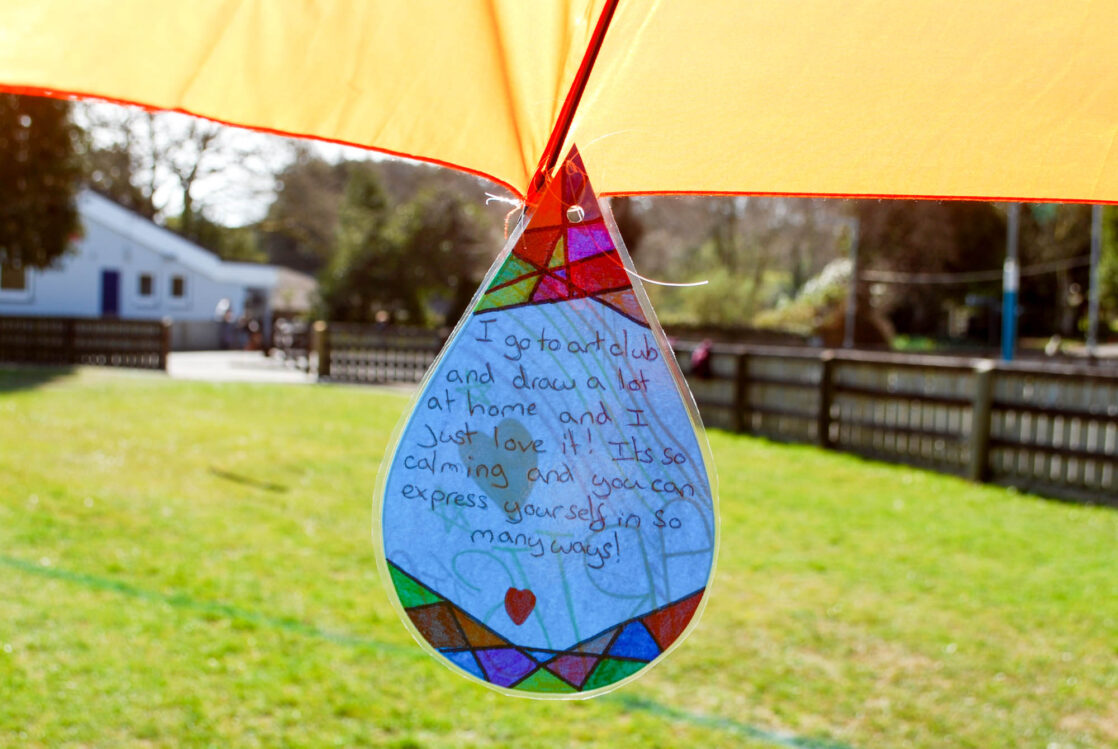 I go to art club
and draw a lot
at home and I
Just love it! Its so
calming and you can
express yourself in so
many ways!